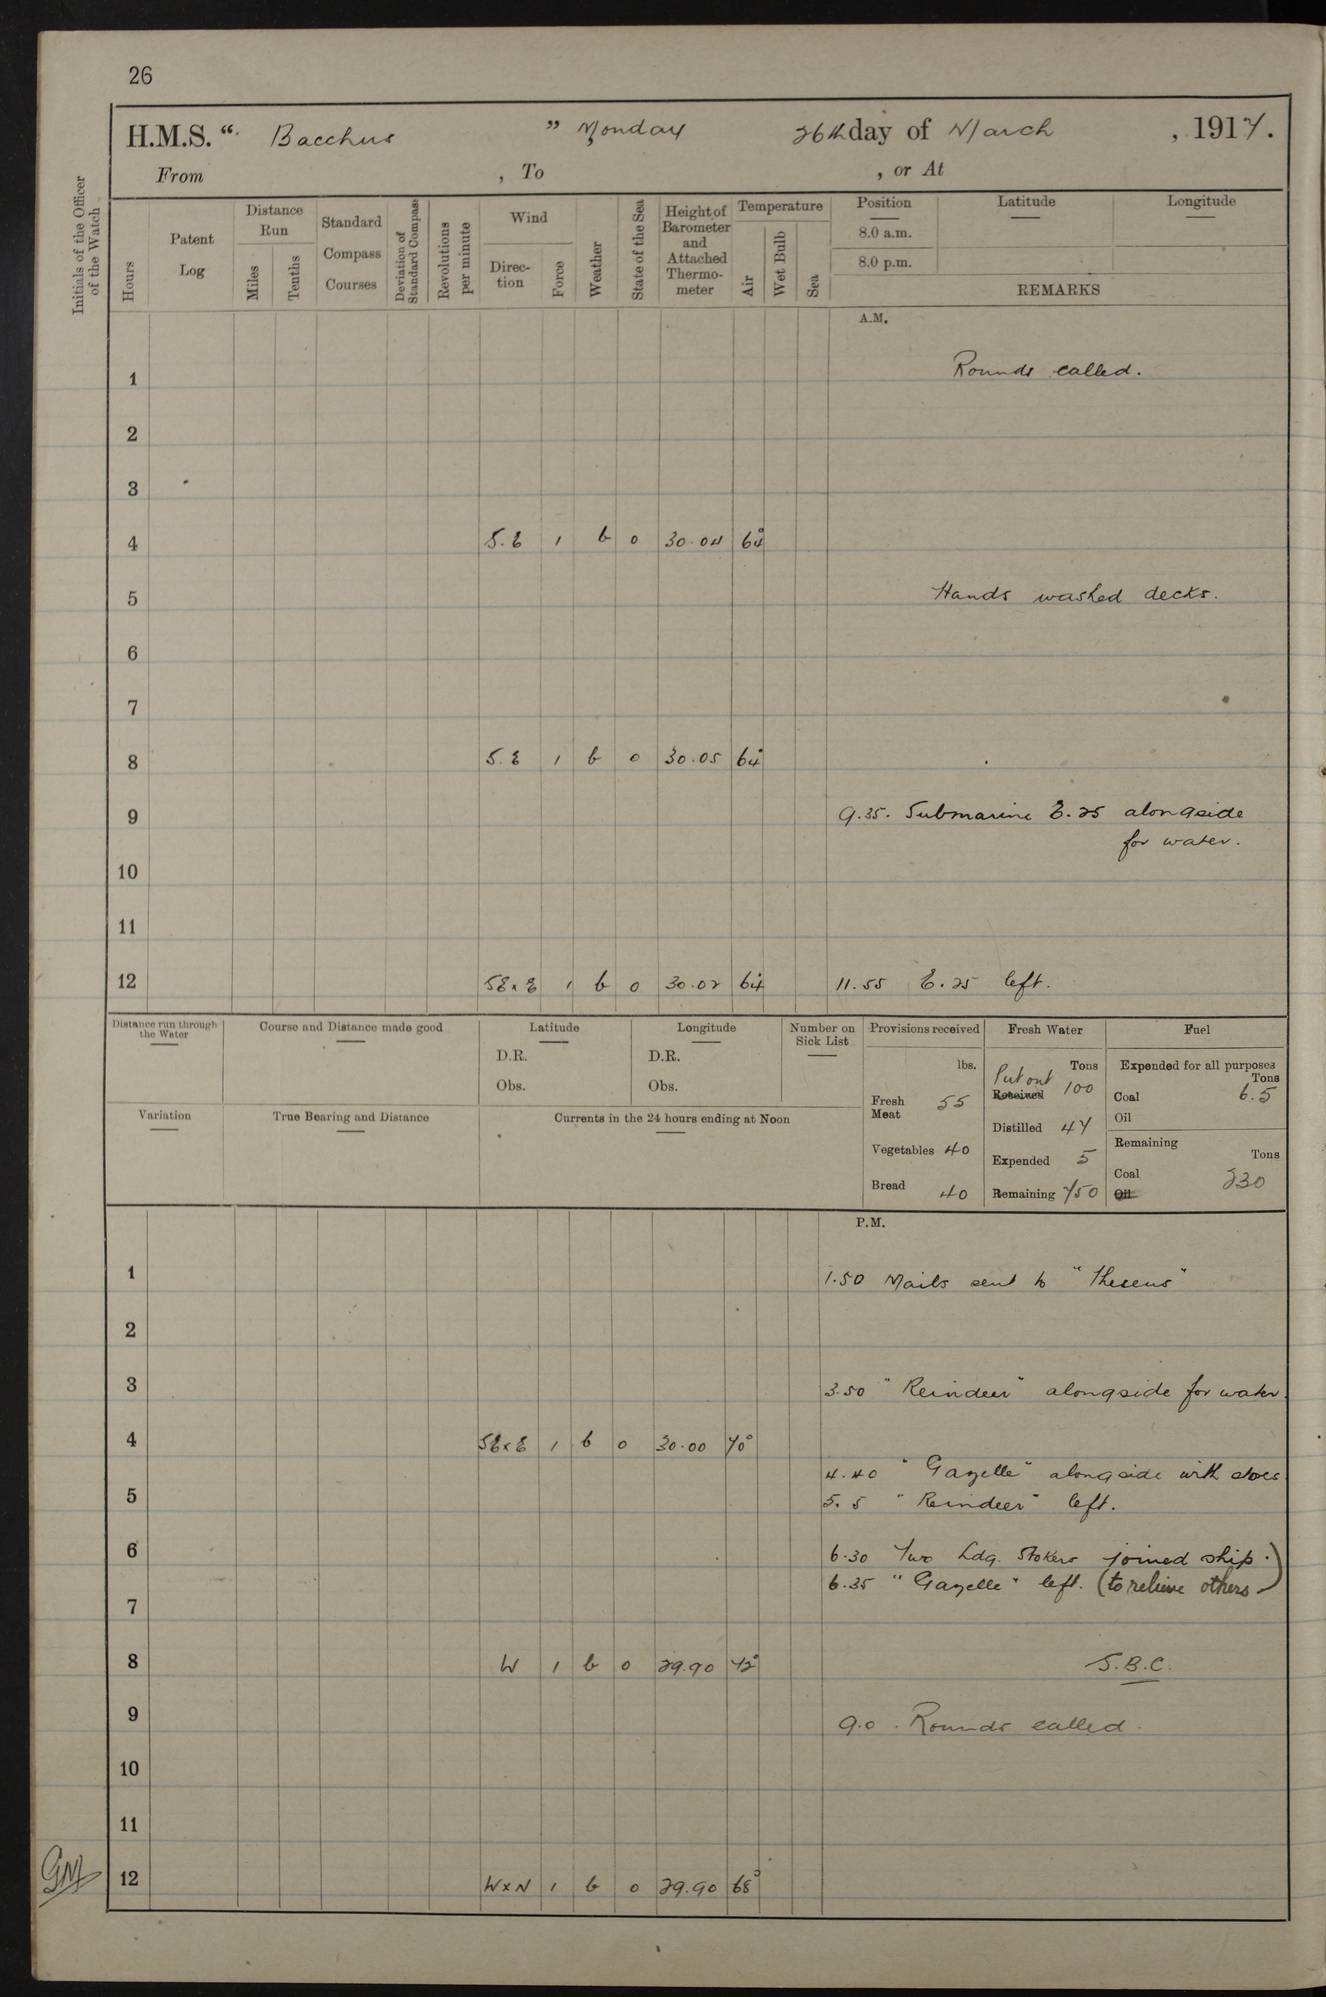 26
H.M.S. “ Bacchus ” Monday 26th day of March , 1917.
From , To , or At
Initials of the Officer of the Watch
Hours
Patent Log
Distance Run
Miles
Tenths
Standard Compass Courses
Deviation of Standard Compass
Revolutions per minute
Wind
Direc-tion
Force
Weather
State of the Sea
Height of Barometer and Attached Thermo-meter
Temperature
Air
Wet Bulb
Sea
Position
Latitude
Longitude
8.0 a.m.
8.0 p.m.
REMARKS
A.M.
1 Rounds called.
2
3
4 S.E 1 b 0 30.04 64°
5 Hands washed decks.
6
7
8 S.E 1 b 0 30.05 64°
9 9.35. Submarine E.25 alongside
for water.
10
11
12 SExE 1 b 0 30.02 64° 11.55 E.25 left.
Distance run through the Water
Course and Distance made good
Latitude
D.R.
Obs.
Longitude
D.R.
Obs.
Number on Sick List
Variation
True Bearing and Distance
Currents in the 24 hours ending at Noon
Provisions received
lbs.
Fresh Meat 55
Vegetables 40
Bread 40
Fresh Water
Tons
Put out
Received 100
Distilled 47
Expended 5
Remaining 750
Fuel
Expended for all purposes
Tons
Coal 6.5
Oil
Remaining
Tons
Coal 230
Oil
P.M.
1 1.50 Mails sent to "Theseus"
2
3 3.50 "Reindeer" alongside for water.
4 SExE 1 b 0 30.00 70°
4.40 "Gazelle" alongside with stores.
5 5.5 "Reindeer" left.
6 6.30 Two Ldg. Stokers joined ship.)
6.35 "Gazelle" left. (to relieve others)
7
8 W 1 b 0 29.90 72° S.B.C.
9 9.0. Rounds called.
10
11
12 WxN 1 b 0 29.90 68°
GM